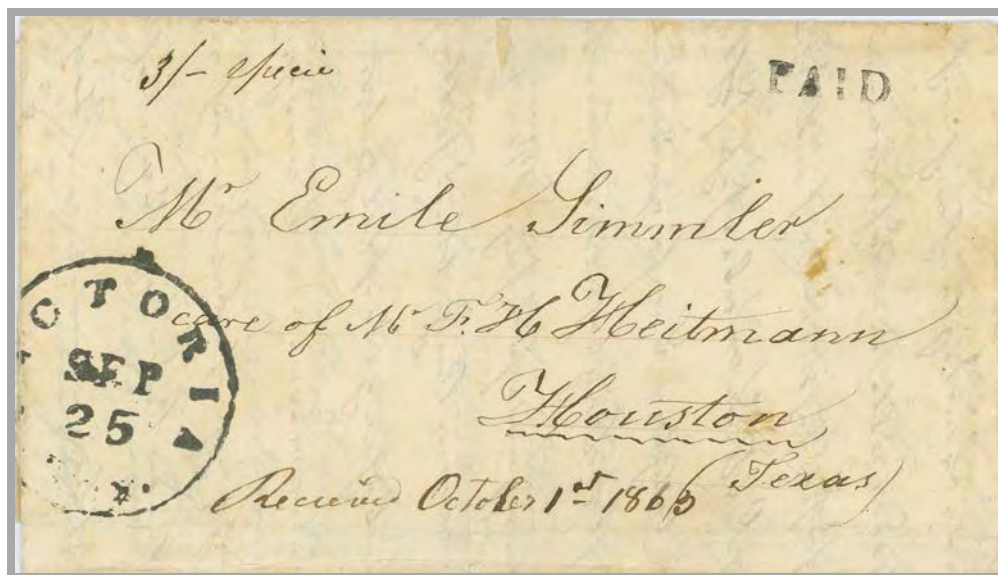 3/- specie
PAID
Mr Emile Simmler
care of Mr F. H Heitmann
Houston
(Texas)
Received October 1st 1865
CTORIA
SEP
25